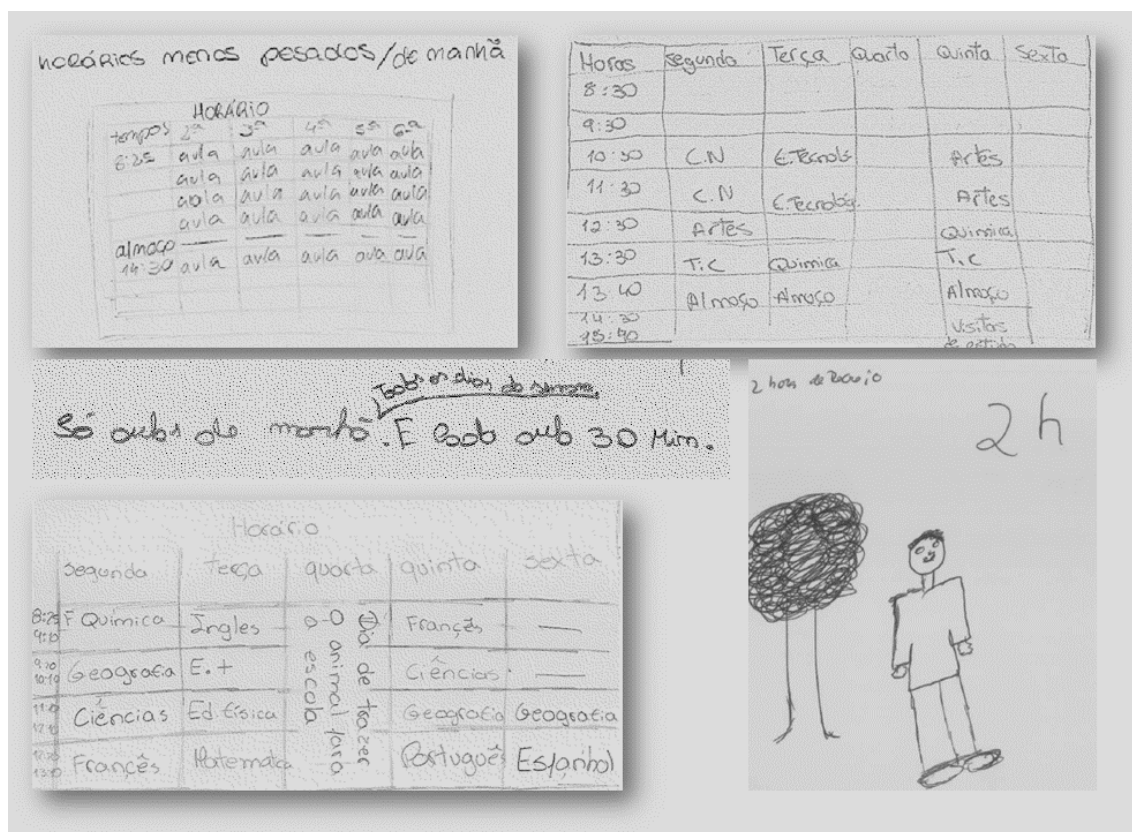 HORÁRIOS MENOS PESADOS/de manhã
HORÁRIO
tempos 2ª 3ª 4ª 5ª 6ª
8:25 aula aula aula aula aula
aula aula aula aula aula
aula aula aula aula aula
aula aula aula aula aula
almoço
14:30 aula aula aula aula aula
Horas Segunda Terça Quarta Quinta Sexta
8:30
9:30
10:30 C.N E.Tecnoló Artes
11:30 C.N E.Tecnológ. Artes
12:30 Artes Química
13:30 T.C Química T.C
13:40 Almoço Almoço Almoço
14:30 Visitas
15:40 de estudo
Todos os dias da semana.
Só aulas de manhã. E cada aula 30 Min.
2 horas de
2h
Horário
segunda terça quarta quinta sexta
8:25 F Química Ingles Francês —
9:10
9:30 Geografia E.+ Ciências —
10:10
Ciências Ed.física Geografia Geografia
Francês Matematica Português Espanhol
Dia de trazer
o animal para
a escola